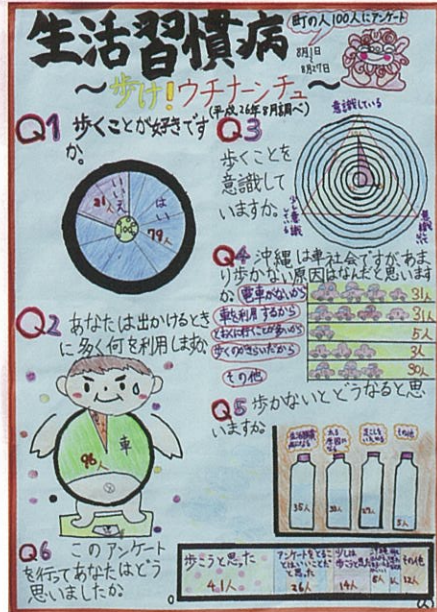 生活習慣病
町の人100人にアンケート
8月1日
～
8月27日
～歩け！ウチナーンチュ～
(平成26年8月調べ)
Q1 歩くことが好きです
か。
いいえ
21人
はい
79人
100
Q2 あなたは出かけるとき
に多く何を利用しますか
車
96人
Q3
歩くことを
意識して
いますか。
意識している
少し意識
している
Q4 沖縄は車社会ですが、あま
り歩かない原因はなんだと思います
か
電車がないから
31人
車を利用するから
31人
とおくに行くことが多いから
5人
歩くのがきらいだから
3人
その他
30人
Q5 歩かないとどうなると思
いますか。
生活習慣
病になる
その他
35人
5人
Q6 このアンケート
を行ってあなたはどう
思いましたか
歩こうと思った
41人
アンケートをとるこ
とはいいことだ
と思った
26人
少しは
歩こうと思った
14人
その他
12人
0